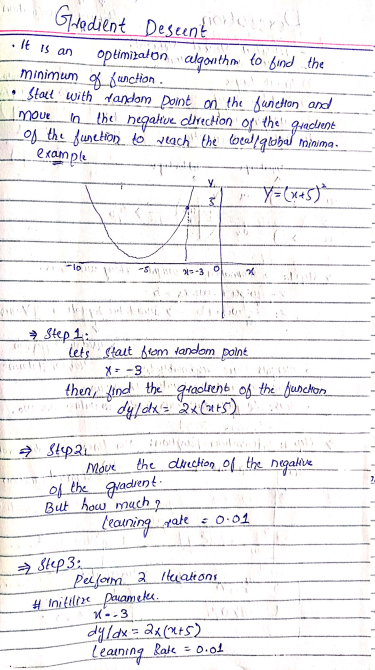 Gradient Descent
• It is an optimization algorithm to find the
minimum of function.
• Start with random point on the function and
move in the negative direction of the gradient
of the function to reach the local/global minima.
example
Y
5
Y=(x+5)²
-10 -5 x=-3 0 x
⇒ Step 1:
lets start from random point
x = -3
then, find the gradient of the function
dy/dx = 2x(x+5)
⇒ Step2:
Move the direction of the negative
of the gradient.
But how much?
learning rate = 0.01
⇒ Step3:
Perform 2 iterations
# Initilize Parameter.
x=-3
dy/dx = 2x(x+5)
Learning Rate = 0.01